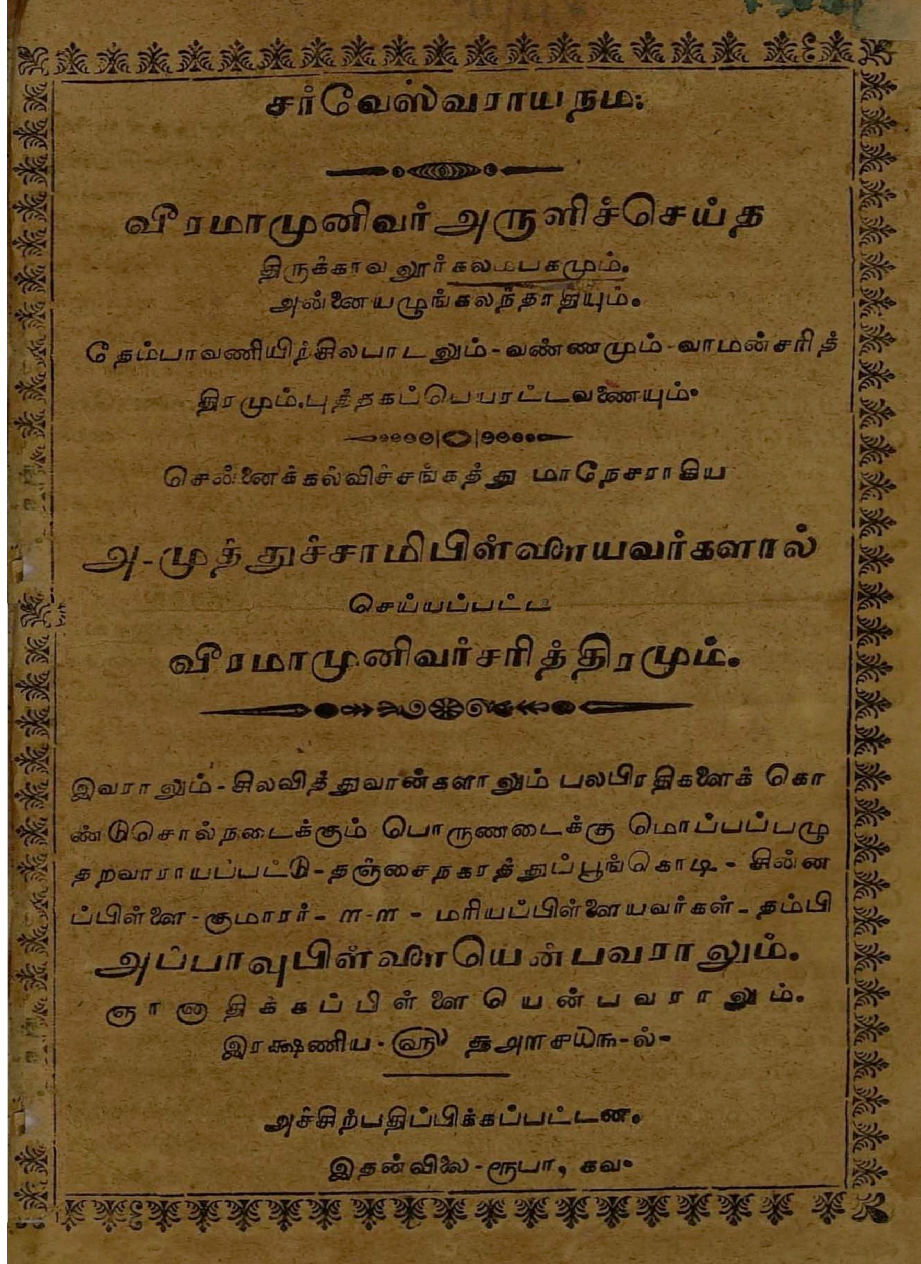 சர்வேஸ்வராயநம:
வீரமாமுனிவர்அருளிச்செய்த
திருக்காவலூர்கலம்பகமும்.
அன்னையழுங்கலந்தாதியும்.
தேம்பாவணியிற்சிலபாடலும்-வண்ணமும்-வாமன்சரித்
திரமும்.புத்தகப்பெயரட்டவணையும்.
சென்னைக்கல்விச்சங்கத்து மாநேசராகிய
அ-முத்துச்சாமிபிள்ளையவர்களால்
செய்யப்பட்ட
வீரமாமுனிவர்சரித்திரமும்.
இவராலும்-சிலவித்துவான்களாலும் பலபிரதிகளைக் கொ
ண்டுசொல்நடைக்கும் பொருணடைக்கு மொப்பப்பழு
தறவாராயப்பட்டு-தஞ்சைநகரத்துப்பூங்கொடி- சின்ன
ப்பிள்ளை-குமாரர்- ௱-௱ - மரியப்பிள்ளையவர்கள்- தம்பி
அப்பாவுபிள்ளையென்பவராலும்.
ஞானாதிக்கப்பிள்ளை யென்பவராலும்.
இரக்ஷணிய-௵ ௲௮௱௪௰௩-ல்-
அச்சிற்பதிப்பிக்கப்பட்டன.
இதன்விலை-ரூபா, கவ